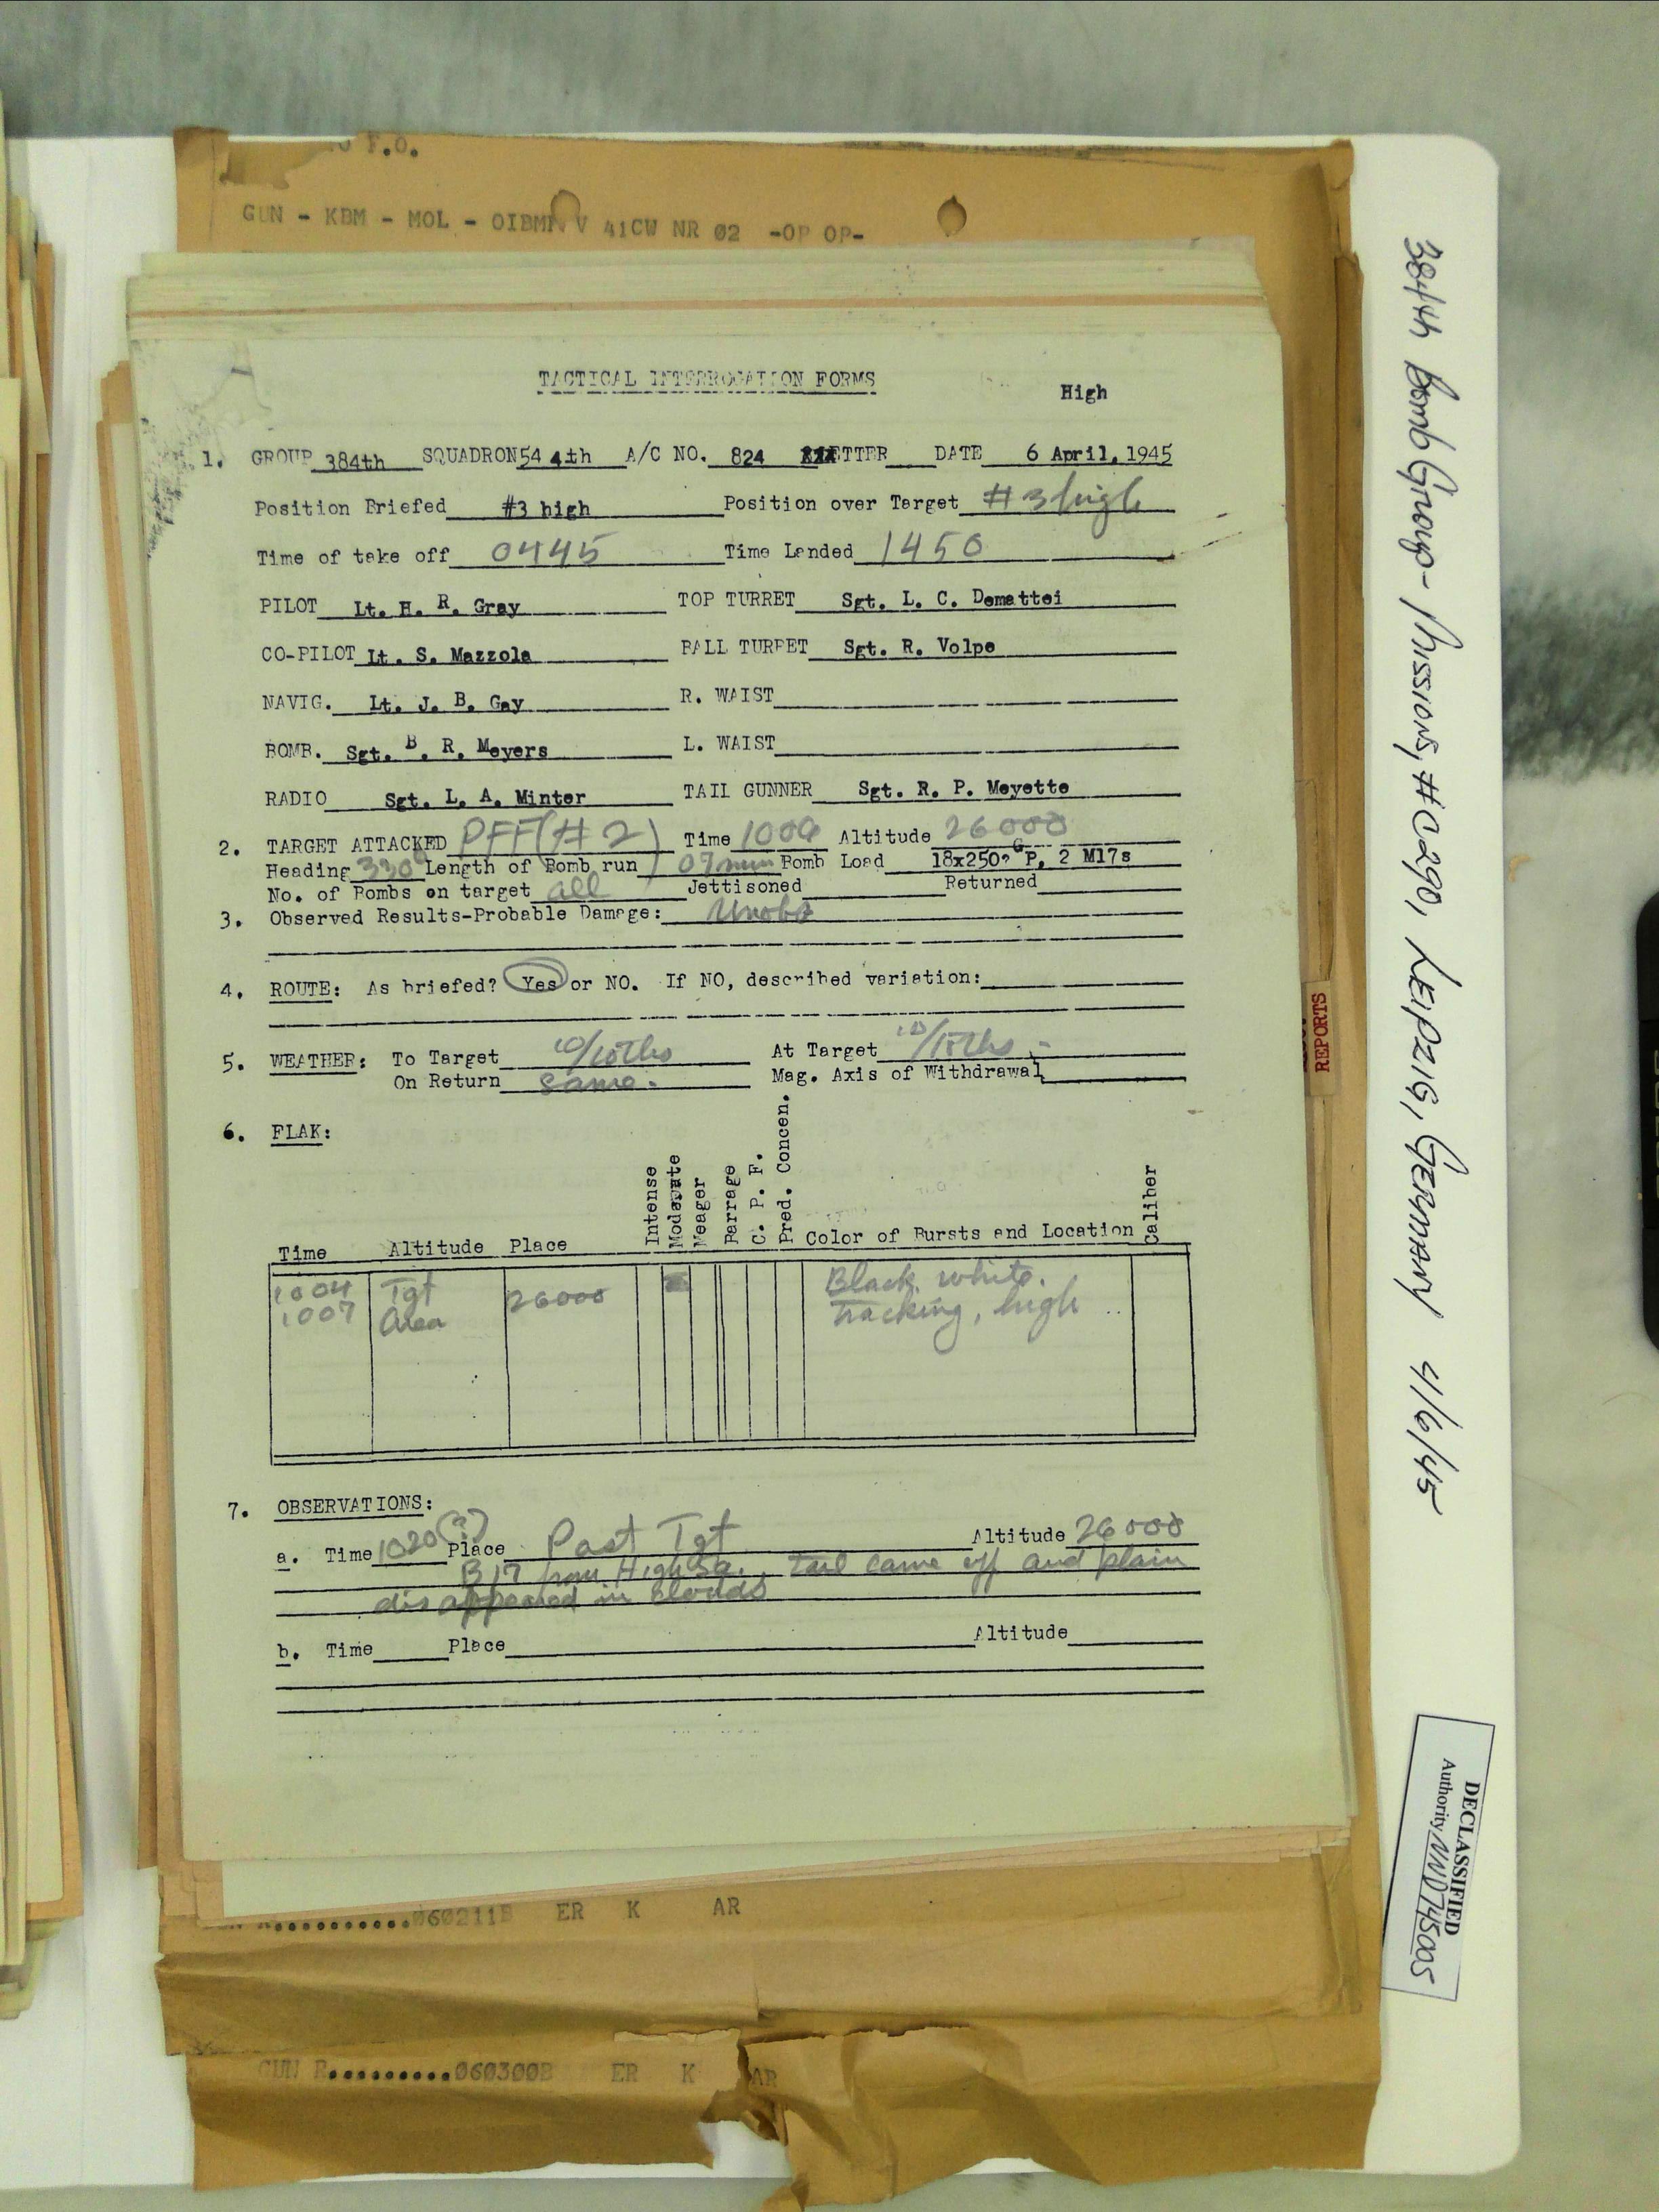 F.O.
GUN - KBM - MOL - OIBMN V 41CW NR 02 -OP OP-
TACTICAL INTERROGATION FORMS
High
1. GROUP 384th SQUADRON 544th A/C NO. 824 LETTER DATE 6 April, 1945
Position Briefed #3 high Position over Target #3 high
Time of take off 0445 Time Landed 1450
PILOT Lt. H. R. Gray TOP TURRET Sgt. L. C. Demattei
CO-PILOT Lt. S. Mazzola BALL TURRET Sgt. R. Volpe
NAVIG. Lt. J. B. Gay R. WAIST
BOMB. Sgt. B. R. Meyers L. WAIST
RADIO Sgt. L. A. Minter TAIL GUNNER Sgt. R. P. Meyette
2. TARGET ATTACKED PFF (#2) Time 1006 Altitude 26000
Heading 330° Length of Bomb run 07 min Bomb Load 18x250? GP, 2 M17s
No. of Bombs on target all Jettisoned Returned
3. Observed Results-Probable Damage: Unobs
4. ROUTE: As briefed? Yes or NO. If NO, described variation:
5. WEATHER: To Target 10/10ths At Target 10/10ths -
On Return same. Mag. Axis of Withdrawal
6. FLAK:
Time Altitude Place Intense Moderate Meager Barrage C. P. F. Pred. Concen. Color of Bursts and Location Caliber
1004 Tgt 26000 Black white.
1007 Area tracking, high
7. OBSERVATIONS:
a. Time 1020(?) Place Past Tgt Altitude 26000
B17 from High Sq. tail came off and plain
disappeared in clouds
b. Time Place Altitude
060211B ER K AR
GUN R..........060300B ER K AR
REPORTS
384th Bomb Group - Missions, #0290, LEIPZIG, GERMANY 4/6/45
DECLASSIFIED
Authority NND745005